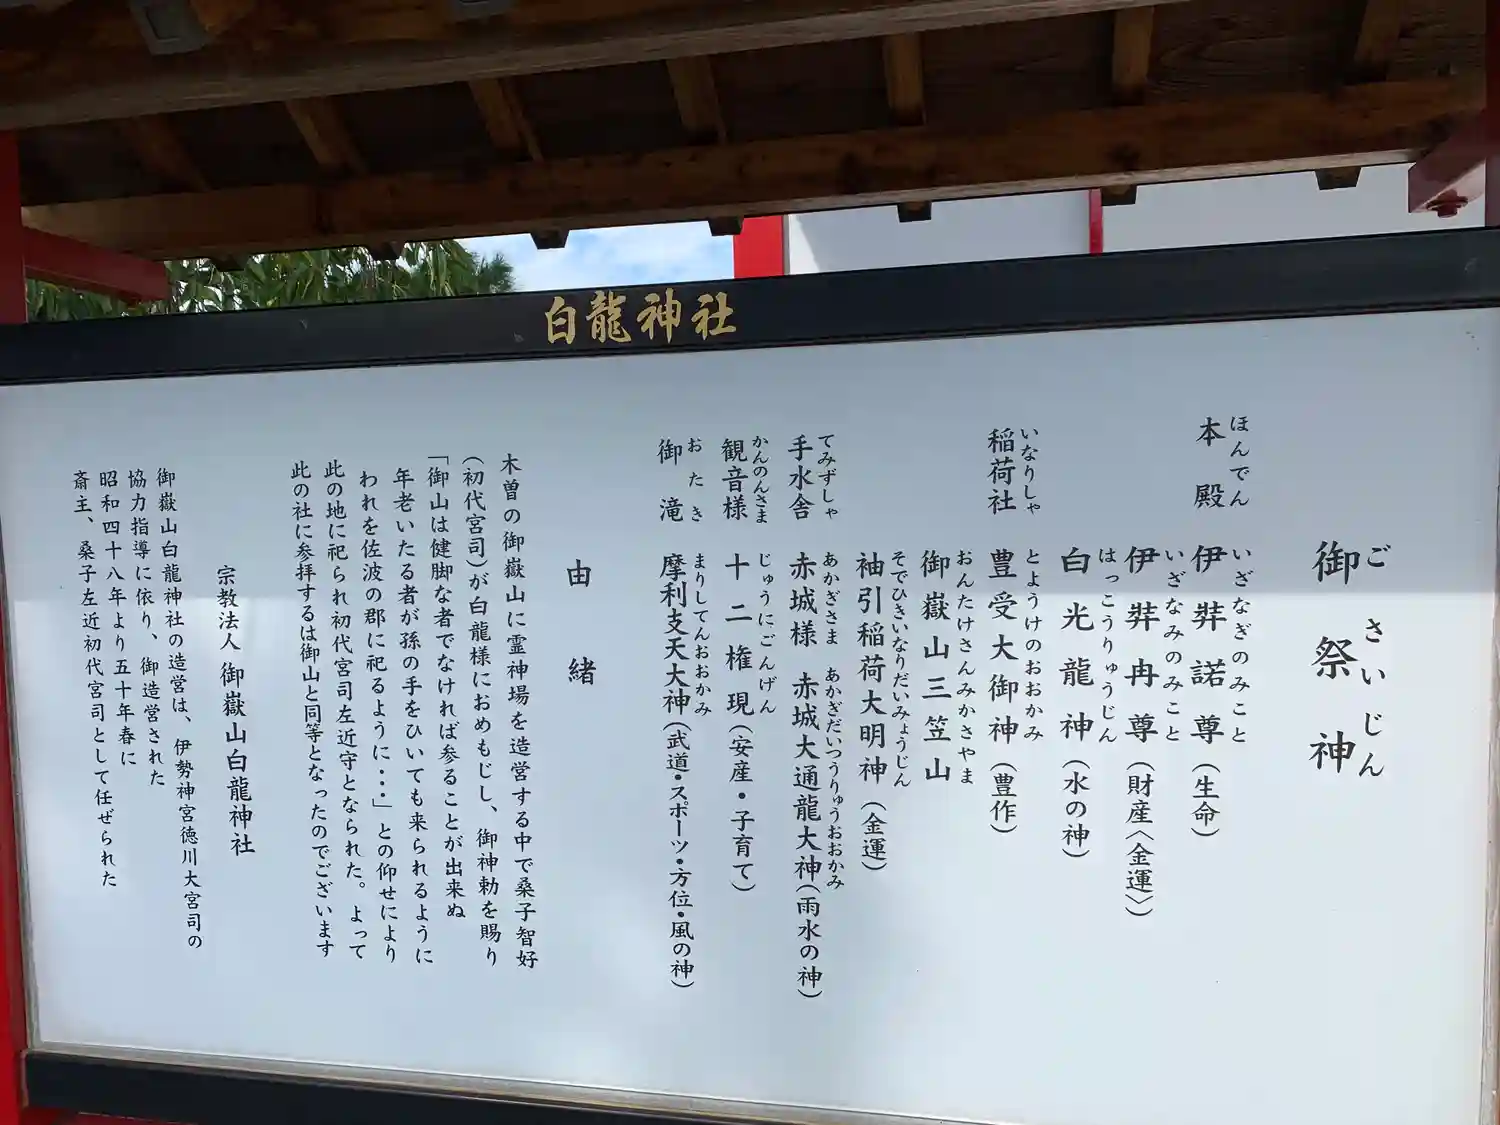 白龍神社
ごさいじん
御祭神
ほんでん いざなぎのみこと
本殿 伊弉諾尊(生命)
いざなみのみこと
伊弉冉尊(財産〈金運〉)
はっこうりゅうじん
白光龍神(水の神)
いなりしゃ とようけのおおかみ
稲荷社 豊受大御神(豊作)
おんたけさんみかさやま
御嶽山三笠山
そでひきいなりだいみょうじん
袖引稲荷大明神(金運)
てみずしゃ あかぎさま あかぎだいつうりゅうおおかみ
手水舎 赤城様 赤城大通龍大神(雨水の神)
かんのんさま じゅうにごんげん
観音様 十二権現(安産・子育て)
おたき まりしてんおおかみ
御滝 摩利支天大神(武道・スポーツ・方位・風の神)
由緒
木曽の御嶽山に霊神場を造営する中で桑子智好
(初代宮司)が白龍様におめもじし、御神勅を賜り
「御山は健脚な者でなければ参ることが出来ぬ
年老いたる者が孫の手をひいても来られるように
われを佐波の郡に祀るように・・・」との仰せにより
此の地に祀られ初代宮司左近守となられた。よって
此の社に参拝するは御山と同等となったのでございます
宗教法人 御嶽山白龍神社
御嶽山白龍神社の造営は、伊勢神宮徳川大宮司の
協力指導に依り、御造営された
昭和四十八年より五十年春に
斎主、桑子左近初代宮司として任ぜられた